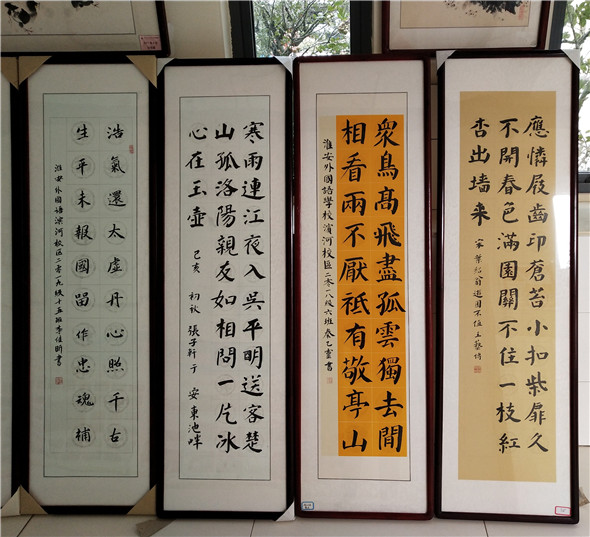 應憐屐齒印蒼苔小扣柴扉久
不開春色滿園關不住一枝紅
杏出墙来
宋葉紹翁遊園不值王藝
衆鳥髙飛盡孤雲獨去閒
相看兩不厭祗有敬亭山
淮安外國語學校濱河校區二零一八級六班秦乙靈書
寒雨連江夜入吳平明送客楚
山孤洛陽親友如相問一片冰
心在玉壺
己亥初秋張子軒于安東池畔
浩氣還太虛丹心照千古
生平未報國留作忠魂補
淮安外國語濱河校區二零一九級十五班李佳昕書